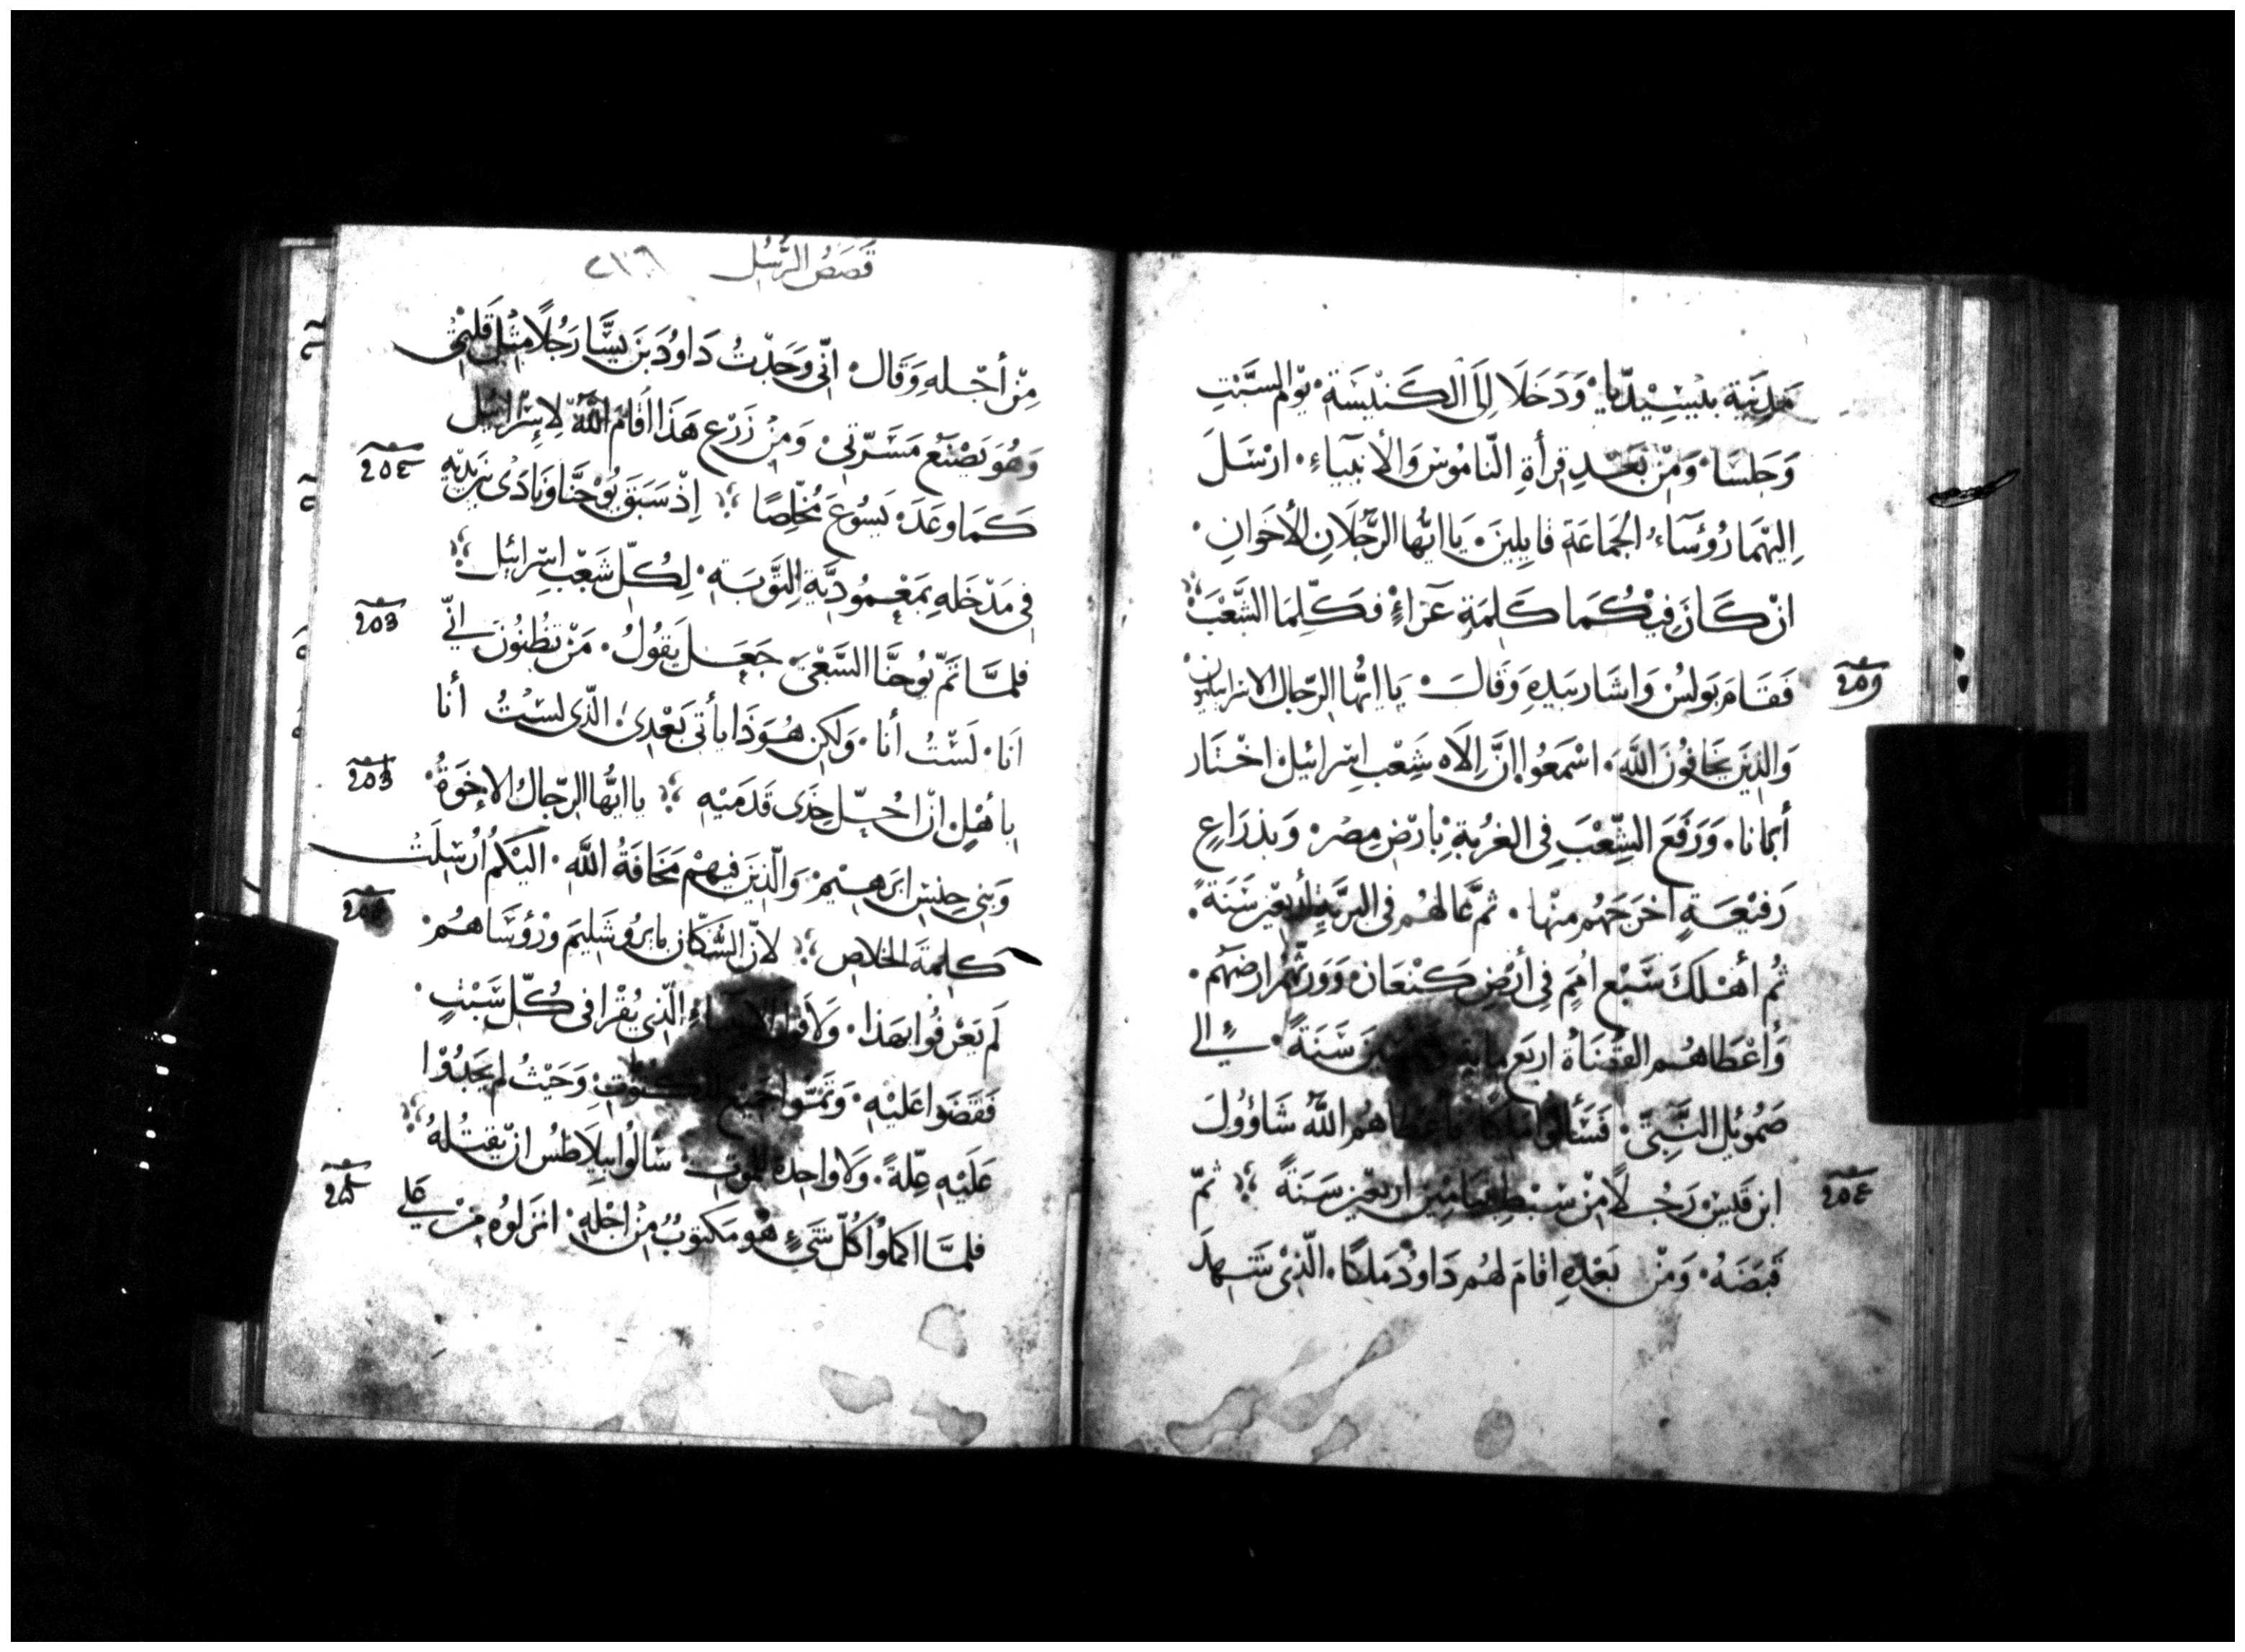 مدينة بيسيديا. وَدَخَلَا اِلَى الكَنيْسَة. يوْم السَّبْتِ
وَجَلسَا. وَمِنْ بَعْدِ قِرأةِ النّامُوْسِ وَالأنبيَاءِ. ارْسَلَ
اِليْهمَا رُؤسَاءُ الجَمَاعَة قايِلِينَ. يَا ايُّها الرَّجُلَانِ الأخَوانِ.
انْ كَانَ فِيْكُمَا كَلمَة عَزاءٍ فكَلِّمَا الشَّعْبَ
فَقَامَ بَولسُ وَاشَارَ بيَدِهِ وَقَالَ. يَا ايُّها الرّجَال الاسراييليون
وَالذينَ يَخافونَ اللَّه. اسْمَعُوا انَّ اِلَاه شعْب اسْرائيل اخْتار
أبَانا. وَرَفعَ الشَّعْبَ فِي الغربَة بِارْضِ مِصْر. وَبذرَاعٍ
رَفيْعَةٍ اخْرَجَهُم منْها. ثم عَالهُم فى البريّة أربعين سَنَة.
ثُم أهْلكَ سَبْع امَمٍ فِي أرْضِ كنْعَان وَوَرثهُم ارضهُم.
وَأعْطَاهُم القضَاة اربَع ماية وخمسين سَنَةً. الى
صَمُويل النَّبِيّ. فسَألوا ملكًا فاعطاهُم اللَّه شَاؤُولَ
ابن قيسْ رَجُلًا مِنْ سبْطِ بنيامين اربعين سَنَةً ثمّ
قبَضَهُ. وَمِنْ بَعْدِهِ اقامَ لهُم دَاوُدَ مَلكًا. الّذى شَهدَ
قَصَصُ الرُّسُل ٢١٦
مِنْ أجْلهِ وَقَال. انّى وَجَدْتُ دَاوُدَ بنَ يسَّا رَجُلًا مثل قلبْى
وَهُوَ يَصْنَعُ مَسَرَّتى. وَمِنْ زَرْع هَذَا اقَامَ اللَّه لاِسْرَائيل
كمَا وَعَدَه يَسُوْعَ مُخلِّصًا اِذْ سَبَقَ يُوْحَنَّا وَنَادَى بين يديْهِ
فى مَدْخَلهِ بمَعْمُوديَّة التَّوبَة. لِكُلّ شَعْب اسْرائيل
فلمَّا تَمَّ يُوحنَّا السَّعْىَ. جَعَل يَقُولُ. مَنْ تظُنونَ انّي
اَنَا. لَسْتُ أنا. وَلكِن هُوَذَا يأتى بَعْدِى الّذى لسْتُ أنا
باهْلٍ انْ احُلّ حِذَى قدَمَيْه يا ايُّها الرّجَال الاِخوَةُ
وَبَنى جنسِ ابرَهِيمَ وَالّذينَ فيهِمْ مَخَافَةُ اللَّهِ. الَيْكمُ ارْسِلَتْ
كلِمَة الخلاص لانّ السُّكّان بايرُوشَليمَ ورُؤسَاهُمْ
لَم يَعْرفُوا بهَذا. وَلا قول الانبياءِ الّذى يُقْرا فى كُلّ سَبْتٍ.
فَقضَوا عَليْهِ. وَتمّوا جَميع المكتوب وَحَيْثُ لم يَجدُوْا
عَلَيْهِ عِلّةً. وَلا واحدة للموت سَألُوا بيلاطسُ انْ يقتُلهُ
فلمَّا اكملوُا كُلّ شَىءٍ هُو مكتوبٌ مِنْ اجْله. انزَلوُه مِنْ على